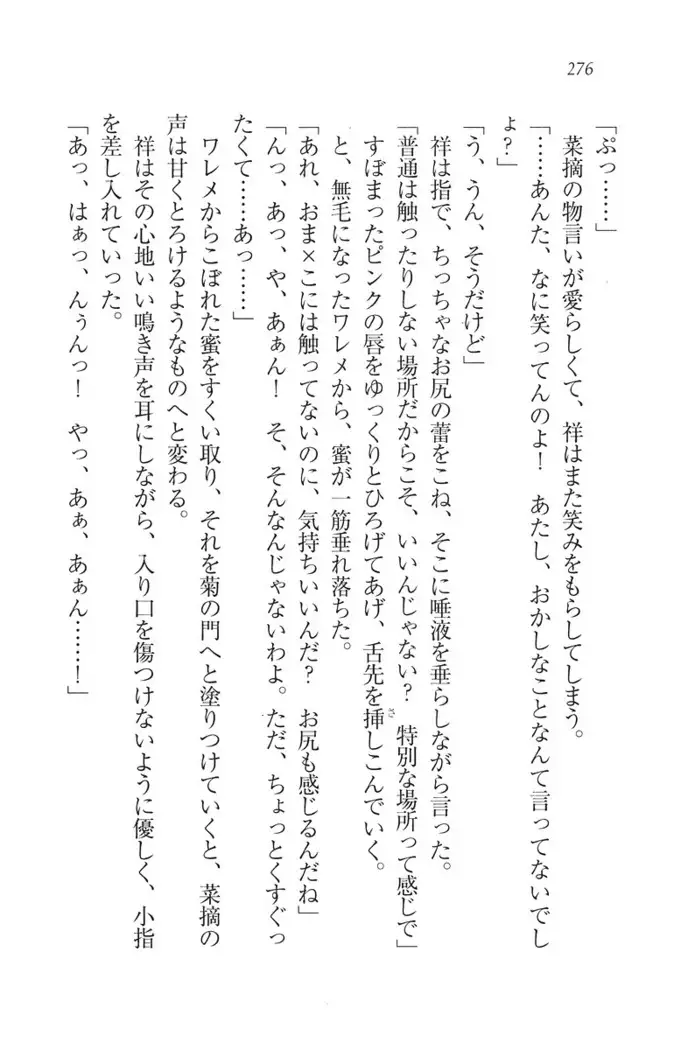 276
「ぷっ……」
菜摘の物言いが愛らしくて、祥はまた笑みをもらしてしまう。
「……あんた、なに笑ってんのよ！　あたし、おかしなことなんて言ってないでし
ょ？」
「う、うん、そうだけど」
祥は指で、ちっちゃなお尻の蕾をこね、そこに唾液を垂らしながら言った。
「普通は触ったりしない場所だからこそ、いいんじゃない？　特別な場所って感じで」
すぼまったピンクの唇をゆっくりとひろげてあげ、舌先を挿さしこんでいく。
と、無毛になったワレメから、蜜が一筋垂れ落ちた。
「あれ、おま×こには触ってないのに、気持ちいいんだ？　お尻も感じるんだね」
「んっ、あっ、や、あぁん！　そ、そんなんじゃないわよ。ただ、ちょっとくすぐっ
たくて……あっ……」
ワレメからこぼれた蜜をすくい取り、それを菊の門へと塗りつけていくと、菜摘の
声は甘くとろけるようなものへと変わる。
祥はその心地いい鳴き声を耳にしながら、入り口を傷つけないように優しく、小指
を差し入れていった。
「あっ、はぁっ、んぅんっ！　やっ、あぁ、あぁん……！」